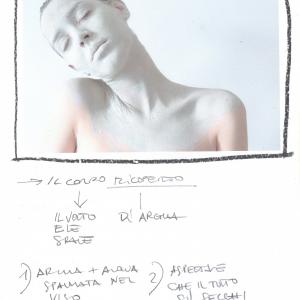 → IL CORPO RICOPERTO
IL VOLTO DI ARGILLA
E LE
SPALLE
1) ARGILLA + ACQUA 2) ASPETTARE
SPALMATA NEL CHE IL TUTTO
VISO SI SECCHI